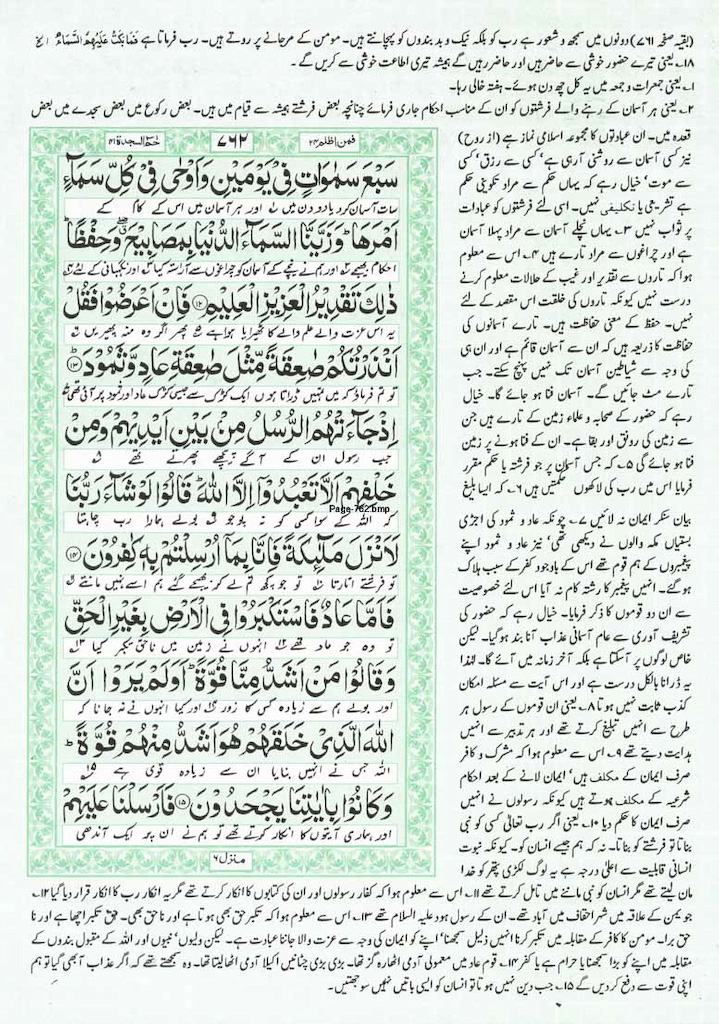 (بقیہ صفحہ ۷۶۱) دونوں میں سمجھ و شعور ہے رب کو بلکہ نیک و بد بندوں کو پہچانتے ہیں۔ مومن کے مرجانے پر روتے ہیں۔ رب فرماتا ہے فَمَا بَكَتْ عَلَيْهِمُ السَّمَاءُ الخ
۱۸۔ یعنی تیرے حضور خوشی سے حاضر ہیں اور حاضر رہیں گے ہمیشہ تیری اطاعت خوشی سے کریں گے۔
۱۔ یعنی جمعرات و جمعہ میں یہ کل چھ دن ہوئے۔ ہفتہ خالی رہا۔
۲۔ یعنی ہر آسمان کے رہنے والے فرشتوں کو ان کے مناسب احکام جاری فرمائے چنانچہ بعض فرشتے ہمیشہ سے قیام میں ہیں۔ بعض رکوع میں بعض سجدے میں بعض
قعدہ میں۔ ان عبادتوں کا مجموعہ اسلامی نماز ہے (از روح)
نیز کسی آسمان سے روشنی آرہی ہے کسی سے رزق، کسی
سے موت، خیال رہے کہ یہاں حکم سے مراد تکوینی حکم
ہے تشریعی یا تکلیفی نہیں۔ اسی لئے فرشتوں کو عبادات
پر ثواب نہیں ۳۔ یہاں نچلے آسمان سے مراد پہلا آسمان
ہے اور چراغوں سے مراد تارے ہیں ۴۔ اس سے معلوم
ہوا کہ تاروں سے تقدیر اور غیب کے حالات معلوم کرنے
درست نہیں کیونکہ تاروں کی خلقت اس مقصد کے لئے
نہیں۔ حفظ کے معنی حفاظت ہیں۔ تارے آسمانوں کی
حفاظت کا ذریعہ ہیں کہ ان سے آسمان قائم ہے اور ان ہی
کی وجہ سے شیاطین آسمان تک نہیں پہنچ سکتے۔ جب
تارے مٹ جائیں گے۔ آسمان فنا ہو جائے گا۔ خیال
رہے کہ حضور کے صحابہ و علماء زمین کے تارے ہیں جن
سے زمین کی رونق اور بقا ہے۔ ان کے فنا ہونے پر زمین
فنا ہو جائے گی ۵۔ کہ جس آسمان پر جو فرشتہ یا حکم مقرر
فرمایا اس میں رب کی لاکھوں حکمتیں ہیں ۶۔ کہ ایسا بلیغ
بیان سنکر ایمان نہ لائیں ۷۔ چونکہ عاد و ثمود کی اجڑی
بستیاں مکہ والوں نے دیکھی تھی، نیز عاد و ثمود اپنے
پیغمبروں کے ہم قوم تھے اس کے باوجود کفر کے سبب ہلاک
ہوگئے۔ انہیں پیغمبر کا رشتہ کام نہ آیا اس لئے خصوصیت
سے ان دو قوموں کا ذکر فرمایا۔ خیال رہے کہ حضور کی
تشریف آوری سے عام آسمانی عذاب آنا بند ہوگیا۔ لیکن
خاص لوگوں پر آسکتا ہے بلکہ آخر زمانہ میں آئے گا۔ لہذا
یہ ڈرانا بالکل درست ہے اور اس آیت سے مسئلہ امکان
کذب ثابت نہیں ہوتا ۸۔ یعنی ان قوموں کے رسول ہر
طرح سے انہیں تبلیغ کرتے تھے اور ہر تدبیر سے انہیں
ہدایت دیتے تھے ۹۔ اس سے معلوم ہوا کہ مشرک و کافر
صرف ایمان کے مکلف ہیں، ایمان لانے کے بعد احکام
شرعیہ کے مکلف ہوتے ہیں کیونکہ رسولوں نے انہیں
صرف ایمان کا حکم دیا ۱۰۔ یعنی اگر رب تعالٰی کسی کو نبی
بناتا تو فرشتہ کو بناتا۔ نہ کہ ہم جیسے انسان کو۔ کیونکہ نبوت
انسانی قابلیت سے اعلٰی درجہ ہے یہ لوگ لکڑی پتھر کو خدا
حٰمٓ السجدة ۴۱ ۷۶۲ فمن اظلم ۲۴
سَبْعَ سَمٰوَاتٍ فِیْ یَوْمَیْنِ وَاَوْحٰی فِیْ كُلِّ سَمَآءٍ
سات آسمان کردیا دو دن میں ۱ اور ہر آسمان میں اس کے کام کے
اَمْرَهَا ؕ وَزَیَّنَّا السَّمَآءَ الدُّنْیَا بِمَصَابِیْحَ ۖ وَحِفْظًا ؕ
احکام بھیجے ۲ اور ہم نے نیچے کے آسمان کو چراغوں سے آراستہ کیا ۳ اور نگہبانی کے لئے ۴
ذٰلِكَ تَقْدِیْرُ الْعَزِیْزِ الْعَلِیْمِ ۝۱۲ فَاِنْ اَعْرَضُوْا فَقُلْ
یہ اس عزت والے علم والے کا ٹھہرایا ہوا ہے ۵ پھر اگر وہ منہ پھیریں ۶
اَنْذَرْتُكُمْ صٰعِقَةً مِّثْلَ صٰعِقَةِ عَادٍ وَّثَمُوْدَ ۝۱۳
تو تم فرماؤ کہ میں تمہیں ڈراتا ہوں ایک کڑک سے جیسی کڑک عاد اور ثمود پر آئی تھی ۷
اِذْ جَآءَتْهُمُ الرُّسُلُ مِنْۢ بَیْنِ اَیْدِیْهِمْ وَمِنْ
جب رسول ان کے آگے پیچھے پھرتے تھے ۸
خَلْفِهِمْ اَلَّا تَعْبُدُوْۤا اِلَّا اللّٰهَ ؕ قَالُوْا لَوْ شَآءَ رَبُّنَا
کہ اللہ کے سوا کسی کو نہ پوجو ۹ بولے ہمارا رب چاہتا
Page-762.bmp
لَاَنْزَلَ مَلٰٓئِكَةً فَاِنَّا بِمَاۤ اُرْسِلْتُمْ بِهٖ كٰفِرُوْنَ ۝۱۴
تو فرشتے اتارتا ۱۰ تو جو کچھ تم لے کر بھیجے گئے ہم اسے نہیں مانتے ۱۱
فَاَمَّا عَادٌ فَاسْتَكْبَرُوْا فِی الْاَرْضِ بِغَیْرِ الْحَقِّ
تو وہ جو عاد تھے ۱۲ انہوں نے زمین میں ناحق تکبر کیا ۱۳
وَقَالُوْا مَنْ اَشَدُّ مِنَّا قُوَّةً ؕ اَوَلَمْ یَرَوْا اَنَّ
اور بولے ہم سے زیادہ کس کا زور ۱۴ اور کیا انہوں نے نہ جانا کہ
اللّٰهَ الَّذِیْ خَلَقَهُمْ هُوَ اَشَدُّ مِنْهُمْ قُوَّةً ؕ
اللہ جس نے انہیں بنایا ان سے زیادہ قوی ہے ۱۵
وَكَانُوْا بِاٰیٰتِنَا یَجْحَدُوْنَ ۝۱۵ فَاَرْسَلْنَا عَلَیْهِمْ
اور ہماری آیتوں کا انکار کرتے تھے تو ہم نے ان پر ایک آندھی
منزل ۶
مان لیتے تھے مگر انسان کو نبی ماننے میں تامل کرتے تھے ۱۱۔ اس سے معلوم ہوا کہ کفار رسولوں اور ان کی کتابوں کا انکار کرتے تھے مگر یہ انکار رب کا انکار قرار دیا گیا ۱۲۔
جو یمن کے علاقہ میں شہر احقاف میں آباد تھے۔ ان کے رسول ہود علیہ السلام تھے ۱۳۔ اس سے معلوم ہوا کہ تکبر حق بھی ہوتا ہے اور ناحق بھی۔ حق تکبر اچھا ہے اور نا
حق برا۔ مومن کا کافر کے مقابلہ میں تکبر کرنا انہیں ذلیل سمجھنا، اپنے کو ایمان کی وجہ سے عزت والا جاننا عبادت ہے۔ لیکن ولیوں، نبیوں اور اللہ کے مقبول بندوں کے
مقابلہ میں اپنے کو بڑا سمجھنا یا حرام ہے یا کفر ۱۴۔ قوم عاد میں معمولی آدمی اٹھارہ گز تھا۔ بڑی بڑی چٹانیں اکیلا آدمی اٹھالیتا تھا۔ وہ سمجھتے تھے کہ اگر عذاب آبھی گیا تو ہم
اپنی قوت سے دفع کردیں گے ۱۵۔ جب دین نہیں ہوتا تو انسان کو ایسی باتیں نہیں سوجھتیں۔